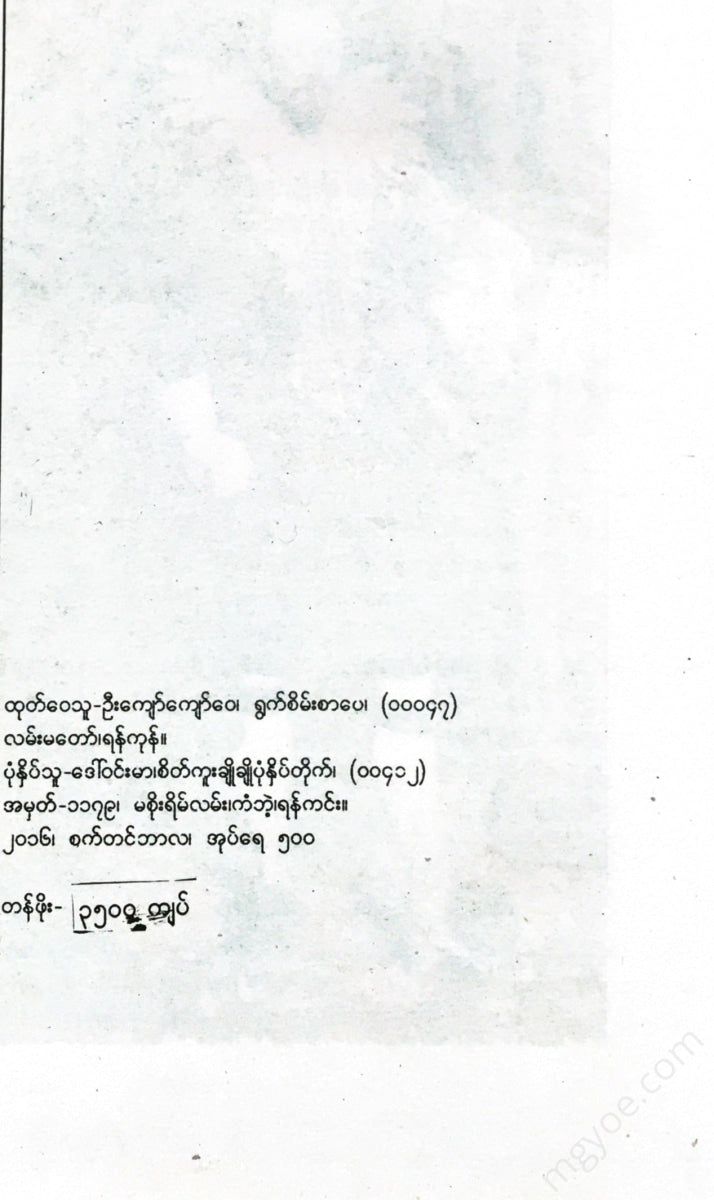 ထုတ်ဝေသူ-ဦးကျော်ကျော်ဝေ၊ ရွက်စိမ်းစာပေ၊ (၀၀၀၄၇)
လမ်းမတော်၊ရန်ကုန်။
ပုံနှိပ်သူ-ဒေါ်ဝင်းမာ၊စိတ်ကူးချိုချိုပုံနှိပ်တိုက်၊ (၀၀၄၁၂)
အမှတ်-၁၁၇၉၊ မစိုးရိမ်လမ်း၊ကံဘဲ့၊ရန်ကင်း။
၂၀၁၆၊ စက်တင်ဘာလ၊ အုပ်ရေ ၅၀၀
တန်ဖိုး- ၃၅၀၀ ကျပ်
mgyoe.com